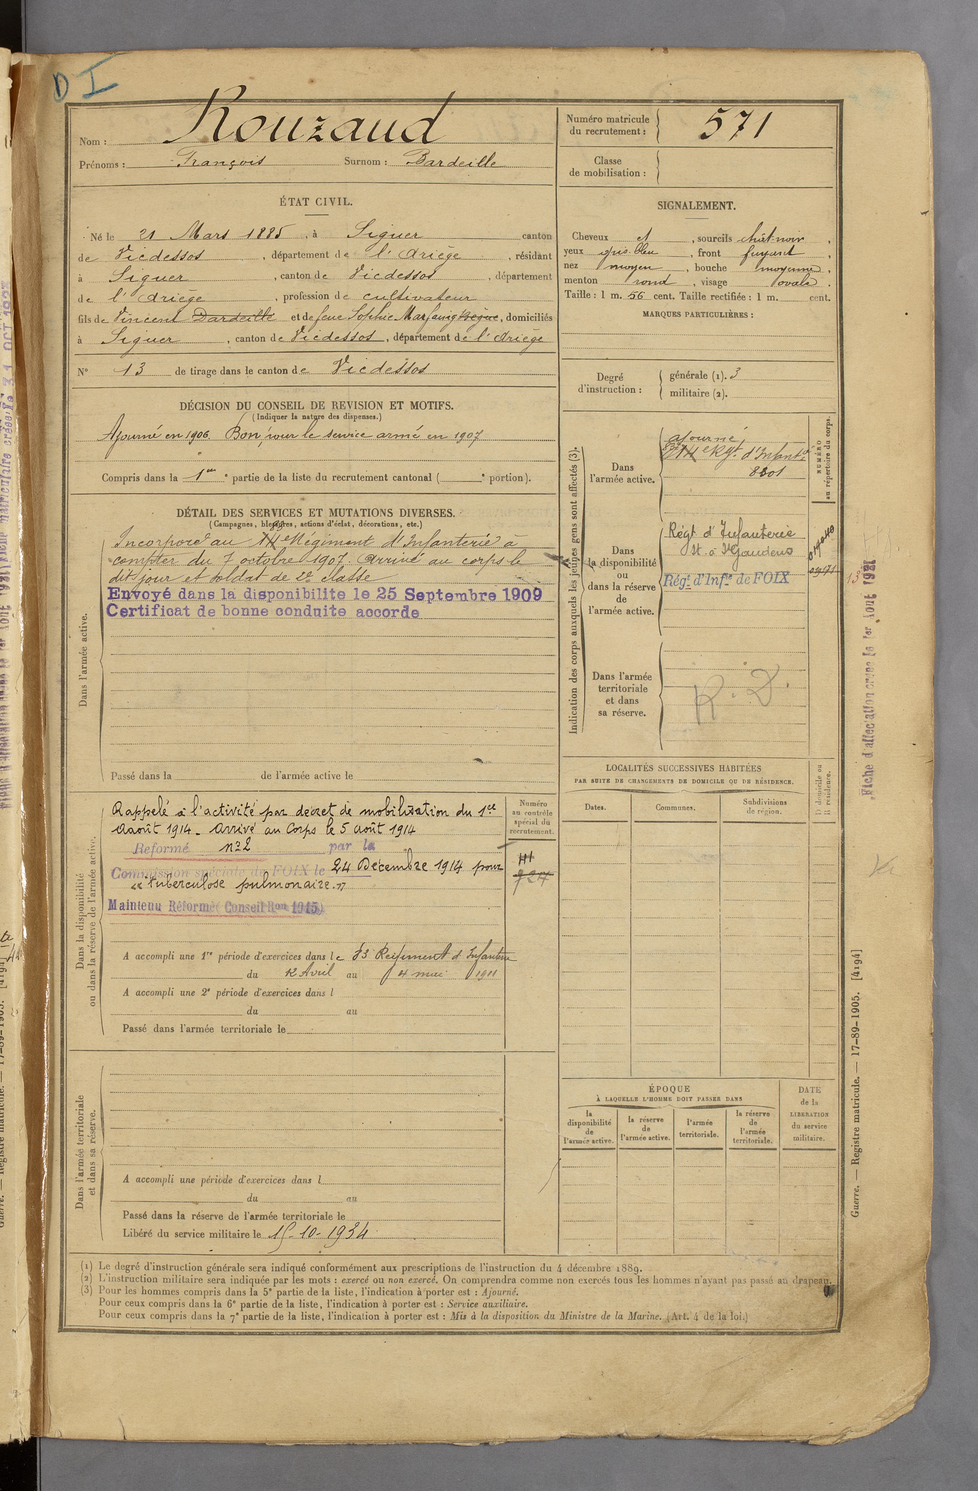 D I
Nom : Rouzaud
Prénoms : François Surnom : Dardeille
Numéro matricule
du recrutement : 571
Classe
de mobilisation :
ÉTAT CIVIL.
Né le 21 Mars 1885, à Siguer canton
de Vicdessos, département de l'Ariège, résidant
à Siguer, canton de Vicdessos, département
de l'Ariège, profession de cultivateur
fils de Vincent Dardeille et de feue Sophie, domiciliés
à Siguer, canton de Vicdessos, département de l'Ariège
N° 13 de tirage dans le canton de Vicdessos
SIGNALEMENT.
Cheveux et, sourcils chât-noir,
yeux gris-bleu, front fuyant,
nez moyen, bouche moyenne,
menton rond, visage ovale.
Taille : 1 m. 56 cent. Taille rectifiée : 1 m. cent.
MARQUES PARTICULIÈRES :
Degré
d'instruction :
générale (1). 3
militaire (2).
DÉCISION DU CONSEIL DE REVISION ET MOTIFS.
(Indiquer la nature des dispenses.)
Ajourné en 1906. Bon pour le service armé en 1907
Compris dans la 1re partie de la liste du recrutement cantonal ( e portion).
DÉTAIL DES SERVICES ET MUTATIONS DIVERSES.
(Campagnes, blessures, actions d'éclat, décorations, etc.)
Dans l'armée active.
Incorporé au Régiment d'Infanterie à
compter du 7 octobre 1907. Arrivé au corps le
dit jour et soldat de 2e classe
Envoyé dans la disponibilite le 25 Septembre 1909
Certificat de bonne conduite accorde
Passé dans la de l'armée active le
Dans la disponibilité
ou dans la réserve de l'armée active.
Rappelé à l'activité par décret de mobilisation du 1er
Août 1914. Arrivé au Corps le 5 Août 1914
Reformé n°2 par la
Commission spéciale de FOIX le 24 Décembre 1914 pour
"tuberculose pulmonaire."
Maintenu Réformé Conseil Ron 1915
A accompli une 1re période d'exercices dans le 83 Régiment d'Infanterie
du 12 Avril au 4 mai 1911
A accompli une 2e période d'exercices dans l
du au
Passé dans l'armée territoriale le
Numéro
au contrôle
spécial du
recrutement.
Dans l'armée territoriale
et dans sa réserve.
A accompli une période d'exercices dans l
du au
Passé dans la réserve de l'armée territoriale le
Libéré du service militaire le 15-10-1934
Indication des corps auxquels les jeunes gens sont affectés (3).
Dans
l'armée active.
ajourné
Rgt. d'Infant
NUMÉRO
au répertoire du corps.
Dans
la disponibilité
ou
dans la réserve
de
l'armée active.
Régt d'Infanterie
St Gaudens
Rég.t d'Inf.rie de FOIX
Dans l'armée
territoriale
et dans
sa réserve.
R. D.
LOCALITÉS SUCCESSIVES HABITÉES
PAR SUITE DE CHANGEMENTS DE DOMICILE OU DE RÉSIDENCE.
Dates.
Communes.
Subdivisions
de région.
D domicile ou
R résidence.
ÉPOQUE
À LAQUELLE L'HOMME DOIT PASSER DANS
la
disponibilité
de
l'armée active.
la réserve
de
l'armée active.
l'armée
territoriale.
la réserve
de
l'armée
territoriale.
DATE
de la
LIBÉRATION
du service
militaire.
Fiche d'affectation créée le 1er Août 1921
Guerre. — Registre matricule. — 17-89-1905. [4194]
(1) Le degré d'instruction générale sera indiqué conformément aux prescriptions de l'instruction du 4 décembre 1889.
(2) L'instruction militaire sera indiquée par les mots : exercé ou non exercé. On comprendra comme non exercés tous les hommes n'ayant pas passé au drapeau.
(3) Pour les hommes compris dans la 5e partie de la liste, l'indication à porter est : Ajourné.
Pour ceux compris dans la 6e partie de la liste, l'indication à porter est : Service auxiliaire.
Pour ceux compris dans la 7e partie de la liste, l'indication à porter est : Mis à la disposition du Ministre de la Marine. (Art. 4 de la loi.)